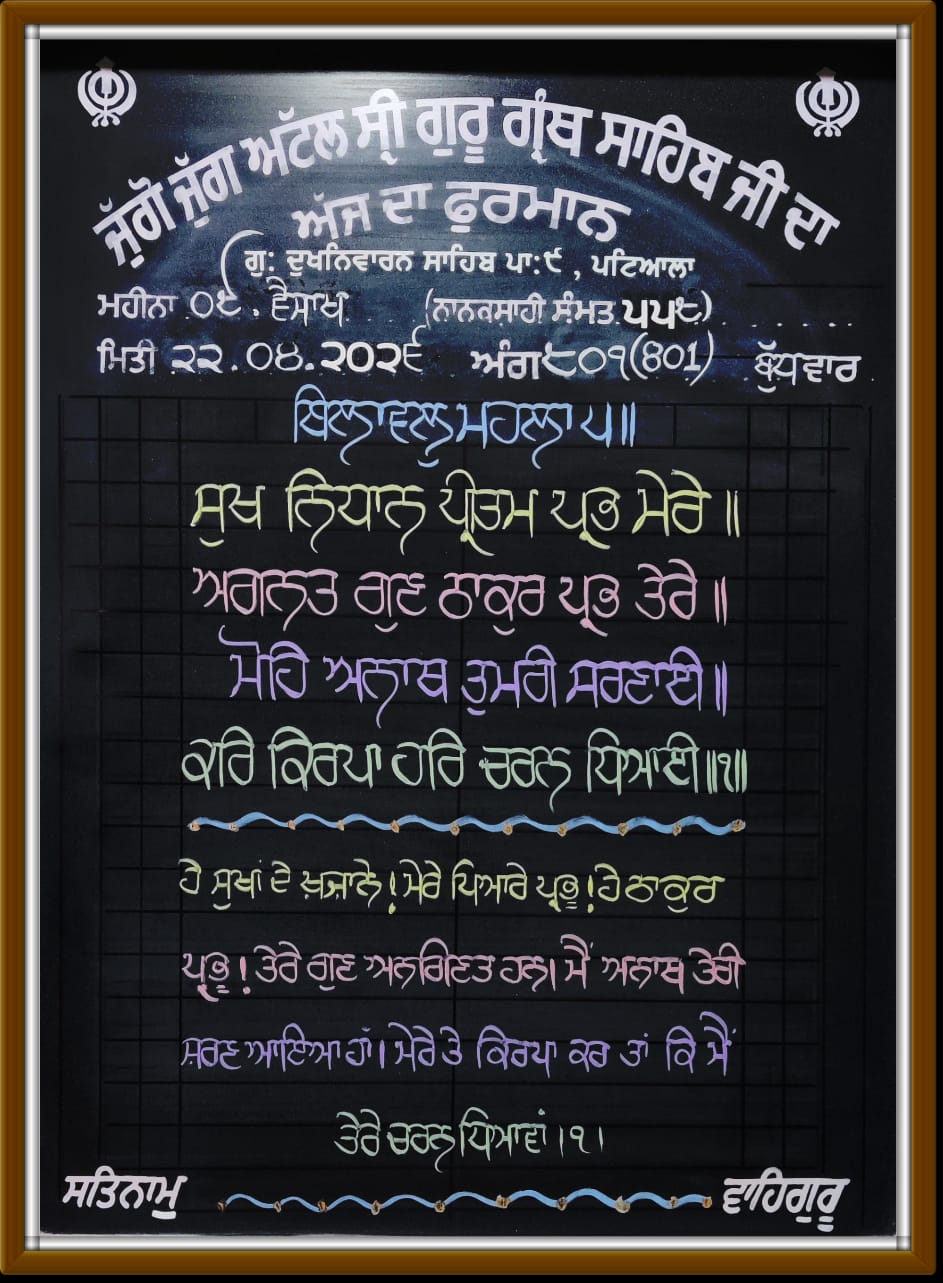 ਜੁੱਗੋ ਜੁੱਗ ਅਟੱਲ ਸ੍ਰੀ ਗੁਰੂ ਗ੍ਰੰਥ ਸਾਹਿਬ ਜੀ ਦਾ
ਅੱਜ ਦਾ ਫੁਰਮਾਨ
ਗੁ: ਦੁਖਨਿਵਾਰਨ ਸਾਹਿਬ ਪਾ:੯ , ਪਟਿਆਲਾ
ਮਹੀਨਾ ੦੯. ਵੈਸਾਖ (ਨਾਨਕਸ਼ਾਹੀ ਸੰਮਤ ੫੫੮)
ਮਿਤੀ ੨੨.੦੪.੨੦੨੬ ਅੰਗ ੮੦੧(801) ਬੁੱਧਵਾਰ
ਬਿਲਾਵਲੁ ਮਹਲਾ ੫॥
ਸੁਖ ਨਿਧਾਨ ਪ੍ਰੀਤਮ ਪ੍ਰਭ ਮੇਰੇ ॥
ਅਗਨਤ ਗੁਣ ਠਾਕੁਰ ਪ੍ਰਭ ਤੇਰੇ ॥
ਮੋਹਿ ਅਨਾਥ ਤੁਮਰੀ ਸਰਣਾਈ ॥
ਕਰਿ ਕਿਰਪਾ ਹਰਿ ਚਰਨ ਧਿਆਈ ॥੧॥
ਹੇ ਸੁਖਾਂ ਦੇ ਖ਼ਜ਼ਾਨੇ! ਮੇਰੇ ਪਿਆਰੇ ਪ੍ਰਭੂ! ਹੇ ਠਾਕੁਰ
ਪ੍ਰਭੂ! ਤੇਰੇ ਗੁਣ ਅਨਗਿਣਤ ਹਨ। ਮੈਂ ਅਨਾਥ ਤੇਰੀ
ਸ਼ਰਣ ਆਇਆ ਹਾਂ। ਮੇਰੇ ਤੇ ਕਿਰਪਾ ਕਰ ਤਾਂ ਕਿ ਮੈਂ
ਤੇਰੇ ਚਰਨ ਧਿਆਵਾਂ।੧।
ਸਤਿਨਾਮੁ ਵਾਹਿਗੁਰੂ